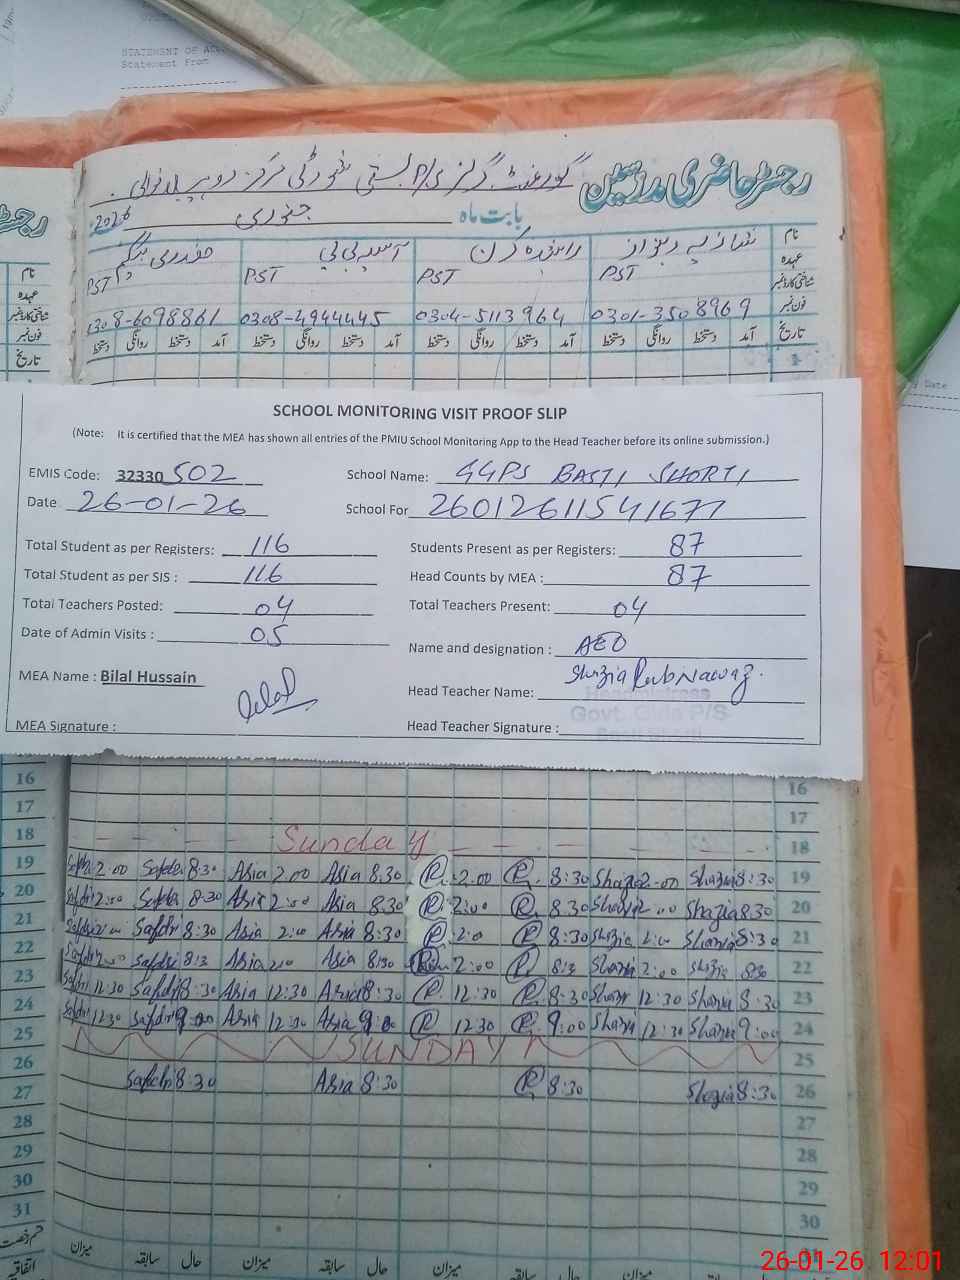 STATEMENT OF
Statement From
رجسٹر حاضری مدرسین
گورنمنٹ گرلز P/S بستی شورٹی مرکز
بابت ماہ جنوری 2026
نام شازیہ ربنواز آسیہ بی بی صفدری بیگم
عہدہ PST PST PST PST
شناختی کارڈ نمبر
فون نمبر 0301-3508969 0304-5113964 0308-4944445 308-6098861
تاریخ آمد دستخط روانگی دستخط آمد دستخط روانگی دستخط آمد دستخط روانگی دستخط آمد دستخط روانگی دستخط
1
SCHOOL MONITORING VISIT PROOF SLIP
(Note: It is certified that the MEA has shown all entries of the PMIU School Monitoring App to the Head Teacher before its online submission.)
EMIS Code: 32330 502 School Name: GGPS BASTI SHORTI
Date 26-01-26 School For 26012611541677
Total Student as per Registers: 116 Students Present as per Registers: 87
Total Student as per SIS : 116 Head Counts by MEA : 87
Total Teachers Posted: 04 Total Teachers Present: 04
Date of Admin Visits : 05 Name and designation : AEO
MEA Name : Bilal Hussain Head Teacher Name: Shazia Rab Nawaz
Headmistress
Govt. Girls P/S
MEA Signature : Bilal Head Teacher Signature :
16 16
17 17
18 Sunday 18
19 2.00 Safdri 8:30 Asia 2.00 Asia 8.30 R. 2.00 R. 8:30 Shazia 2.00 Shazia 8:30 19
20 Safdri 2:00 Safdri 8:30 Asia 2:00 Asia 8:30 R. 2:00 R. 8.30 Shazia 2.00 Shazia 8.30 20
21 Safdri 8:30 Asia 2:00 Asia 8:30 R 2:0 R 8:30 Shazia 2:00 Shazia 8:30 21
22 Safdri 2:00 Safdri 8:3 Asia 2:0 Asia 8:30 2:00 R. 8:3 Shazia 2:00 Shazia 8:30 22
23 Safdri 12:30 Safdri 8:30 Asia 12:30 Asia 8:30 R. 12:30 R. 8:30 Shazia 12:30 Shazia 8:30 23
24 Safdri 12:30 Safdri 9:00 Asia 12:30 Asia 9:00 R. 12:30 R. 9:00 Shazia 12:30 Shazia 9:00 24
25 SUNDAY 25
26 Safdri 8:30 Asia 8:30 R. 8:30 Shazia 8:30 26
27 27
28 28
29 29
30 30
31
میزان سابقہ حال میزان سابقہ حال میزان سابقہ حال میزان
اتفاقیہ
26-01-26 12:01